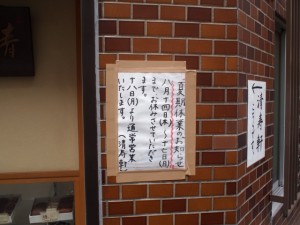 夏期休業のお知らせ
八月十四日(木)～十七日(日)
まで、お休みさせていただき
ます。
十八日(月)より通常営業
いたします。
(清寿軒)
清寿軒
清